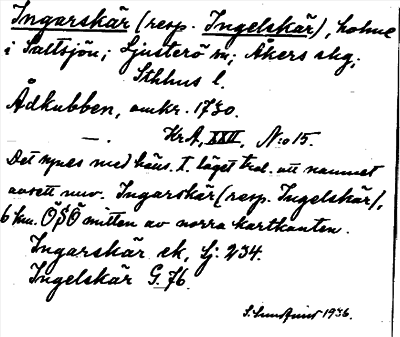 Ingarskär (resp. Ingelskär), holme
i Saltsjön; Ljusterö sn; Åkers skg;
Sthlms l.
Ådkubben, omkr. 1730.
— . KrA, XXII, N:o 15.
Det synes med häns. t. läget trol. att namnet
avsett nuv. Ingarskär (resp. Ingelskär),
6 km. ÖSÖ mitten av norra kartkanten.
Ingarskär ek, Sj. 234.
Ingelskär G. 76.
1936.